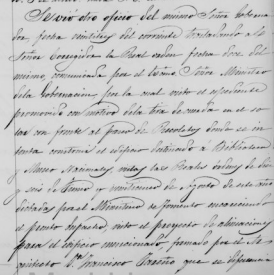 Se vió otro oficio del mismo Señor Goberna
dor fecha veintitres del corriente trasladando al
Señor Corregidor la Real orden fecha doce del
mismo, comunicada por el Exmo. Señor Ministro
de la Gobernacion, por la cual visto el espediente
promovido con motivo de la tira de cuerda en el so
lar con frente al paseo de Recoletos donde se in
tenta construir el edificio destinado á Biblioteca
y Museo Nacionales, vistas las Reales ordenes de diez
y seis de Junio y veintiuno de Agosto de este año
dictadas por el Ministerio de Fomento
el pronto despacho, visto el proyecto de alineaciones
para el edificio mencionado, formado por el Ar
quitecto Dn. Francisco Jareño que se